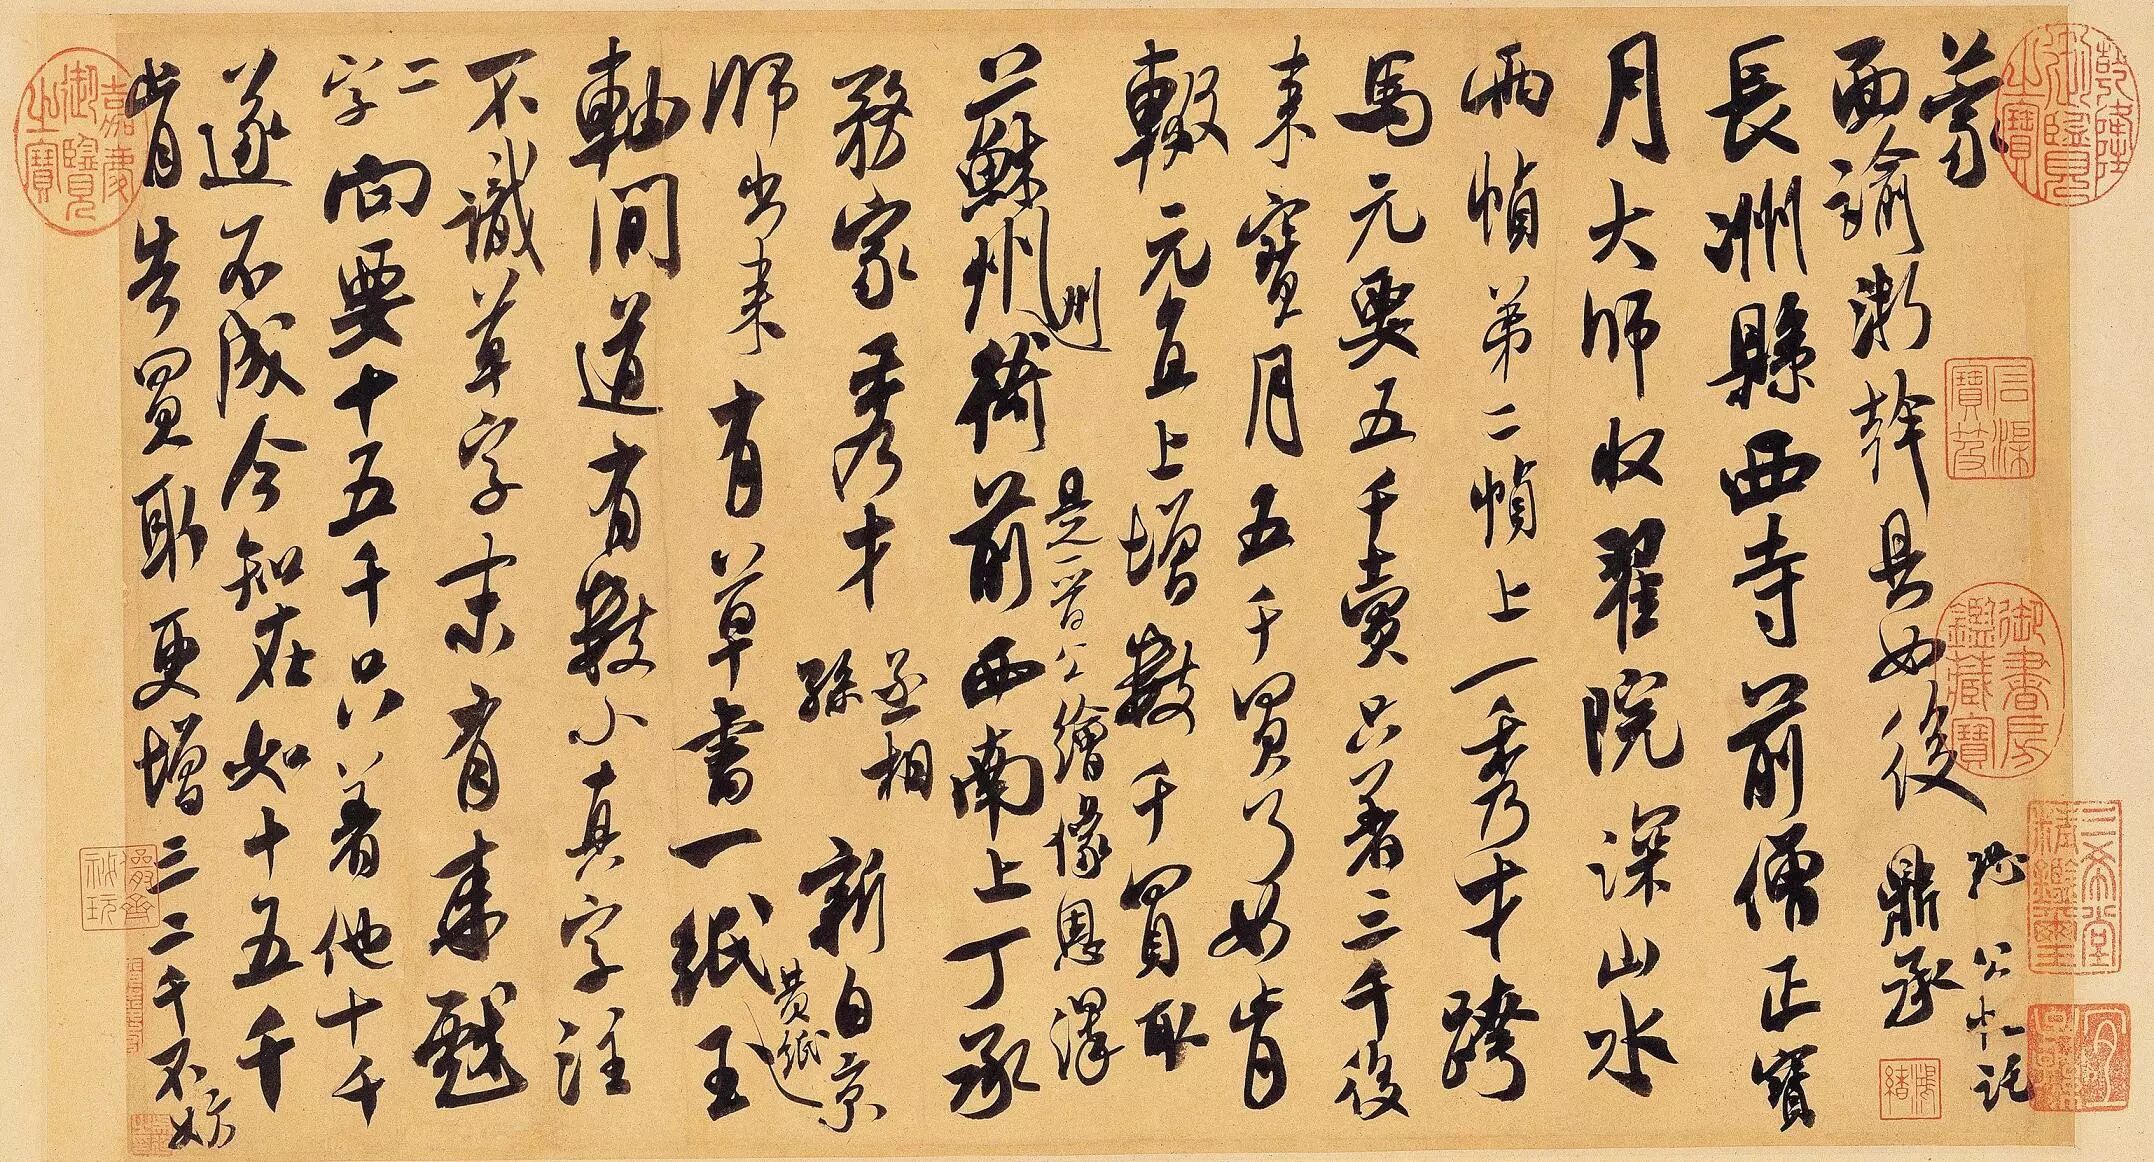 蒙
面諭浙幹具如後 鼎承
公 記
長洲縣西寺前僧正寶
月大師收翟院深山水
兩幀第二幀上一秀才跨
馬元要五千賣只著三千後
來寶月五千買了如肯
輟元直上增數千買取
州 是一晉公繪像恩澤
蘇州衙前西南上丁承
務家秀才 丞相孫 新自京
師出來有草書一紙玉
黃紙
軸間道有數小真字注
不識草字末有來戲
二字向要十五千只著他十千
遂不成今知在如十五千
肯告買取更增三二千不妨
乾隆御覽之寶
石渠寶笈
御書房鑑藏寶
三希堂精鑑璽
宜子孫
嘉慶御覽之寶